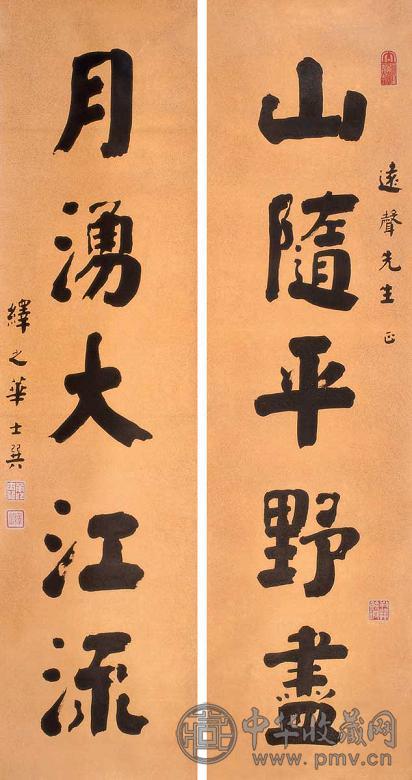 遠聲先生正
山隨平野盡
月湧大江流
繹之華士巽
中华收藏网
www.pmv.cn